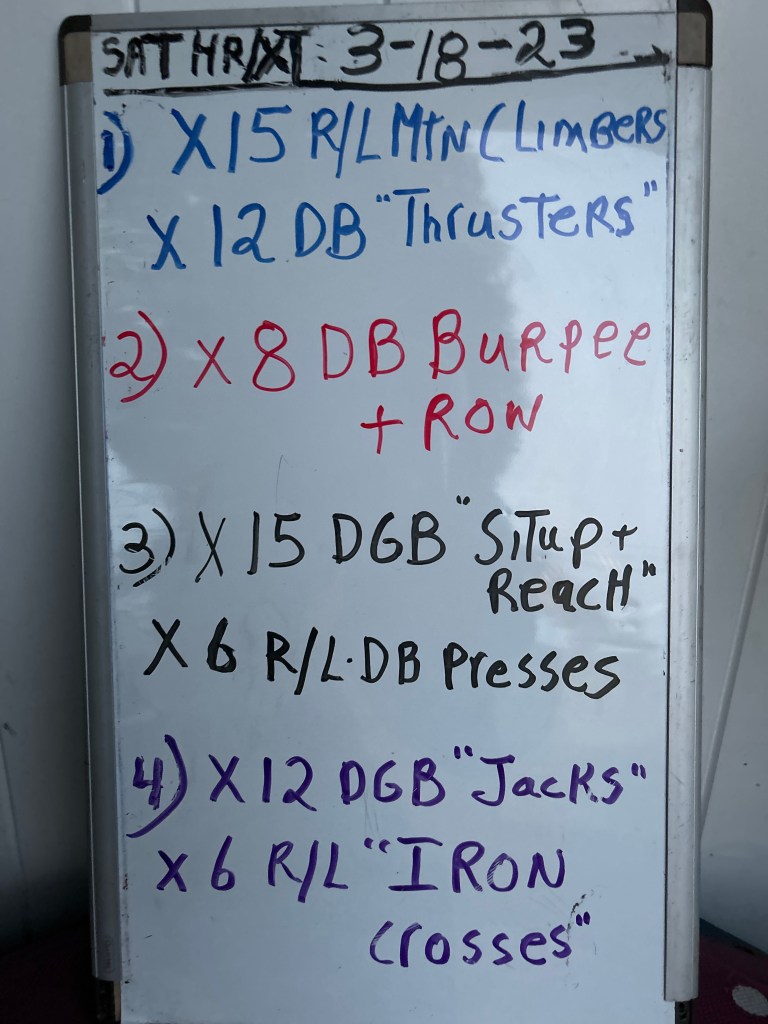 SAT HR/XT: 3-18-23
1) X15 R/L MTN CLIMBERS
X 12 DB "Thrusters"
2) X 8 DB Burpee
+ ROW
3) X 15 DGB "Situp+
Reach"
X 6 R/L·DB Presses
4) X12 DGB "Jacks"
X 6 R/L "IRON
Crosses"